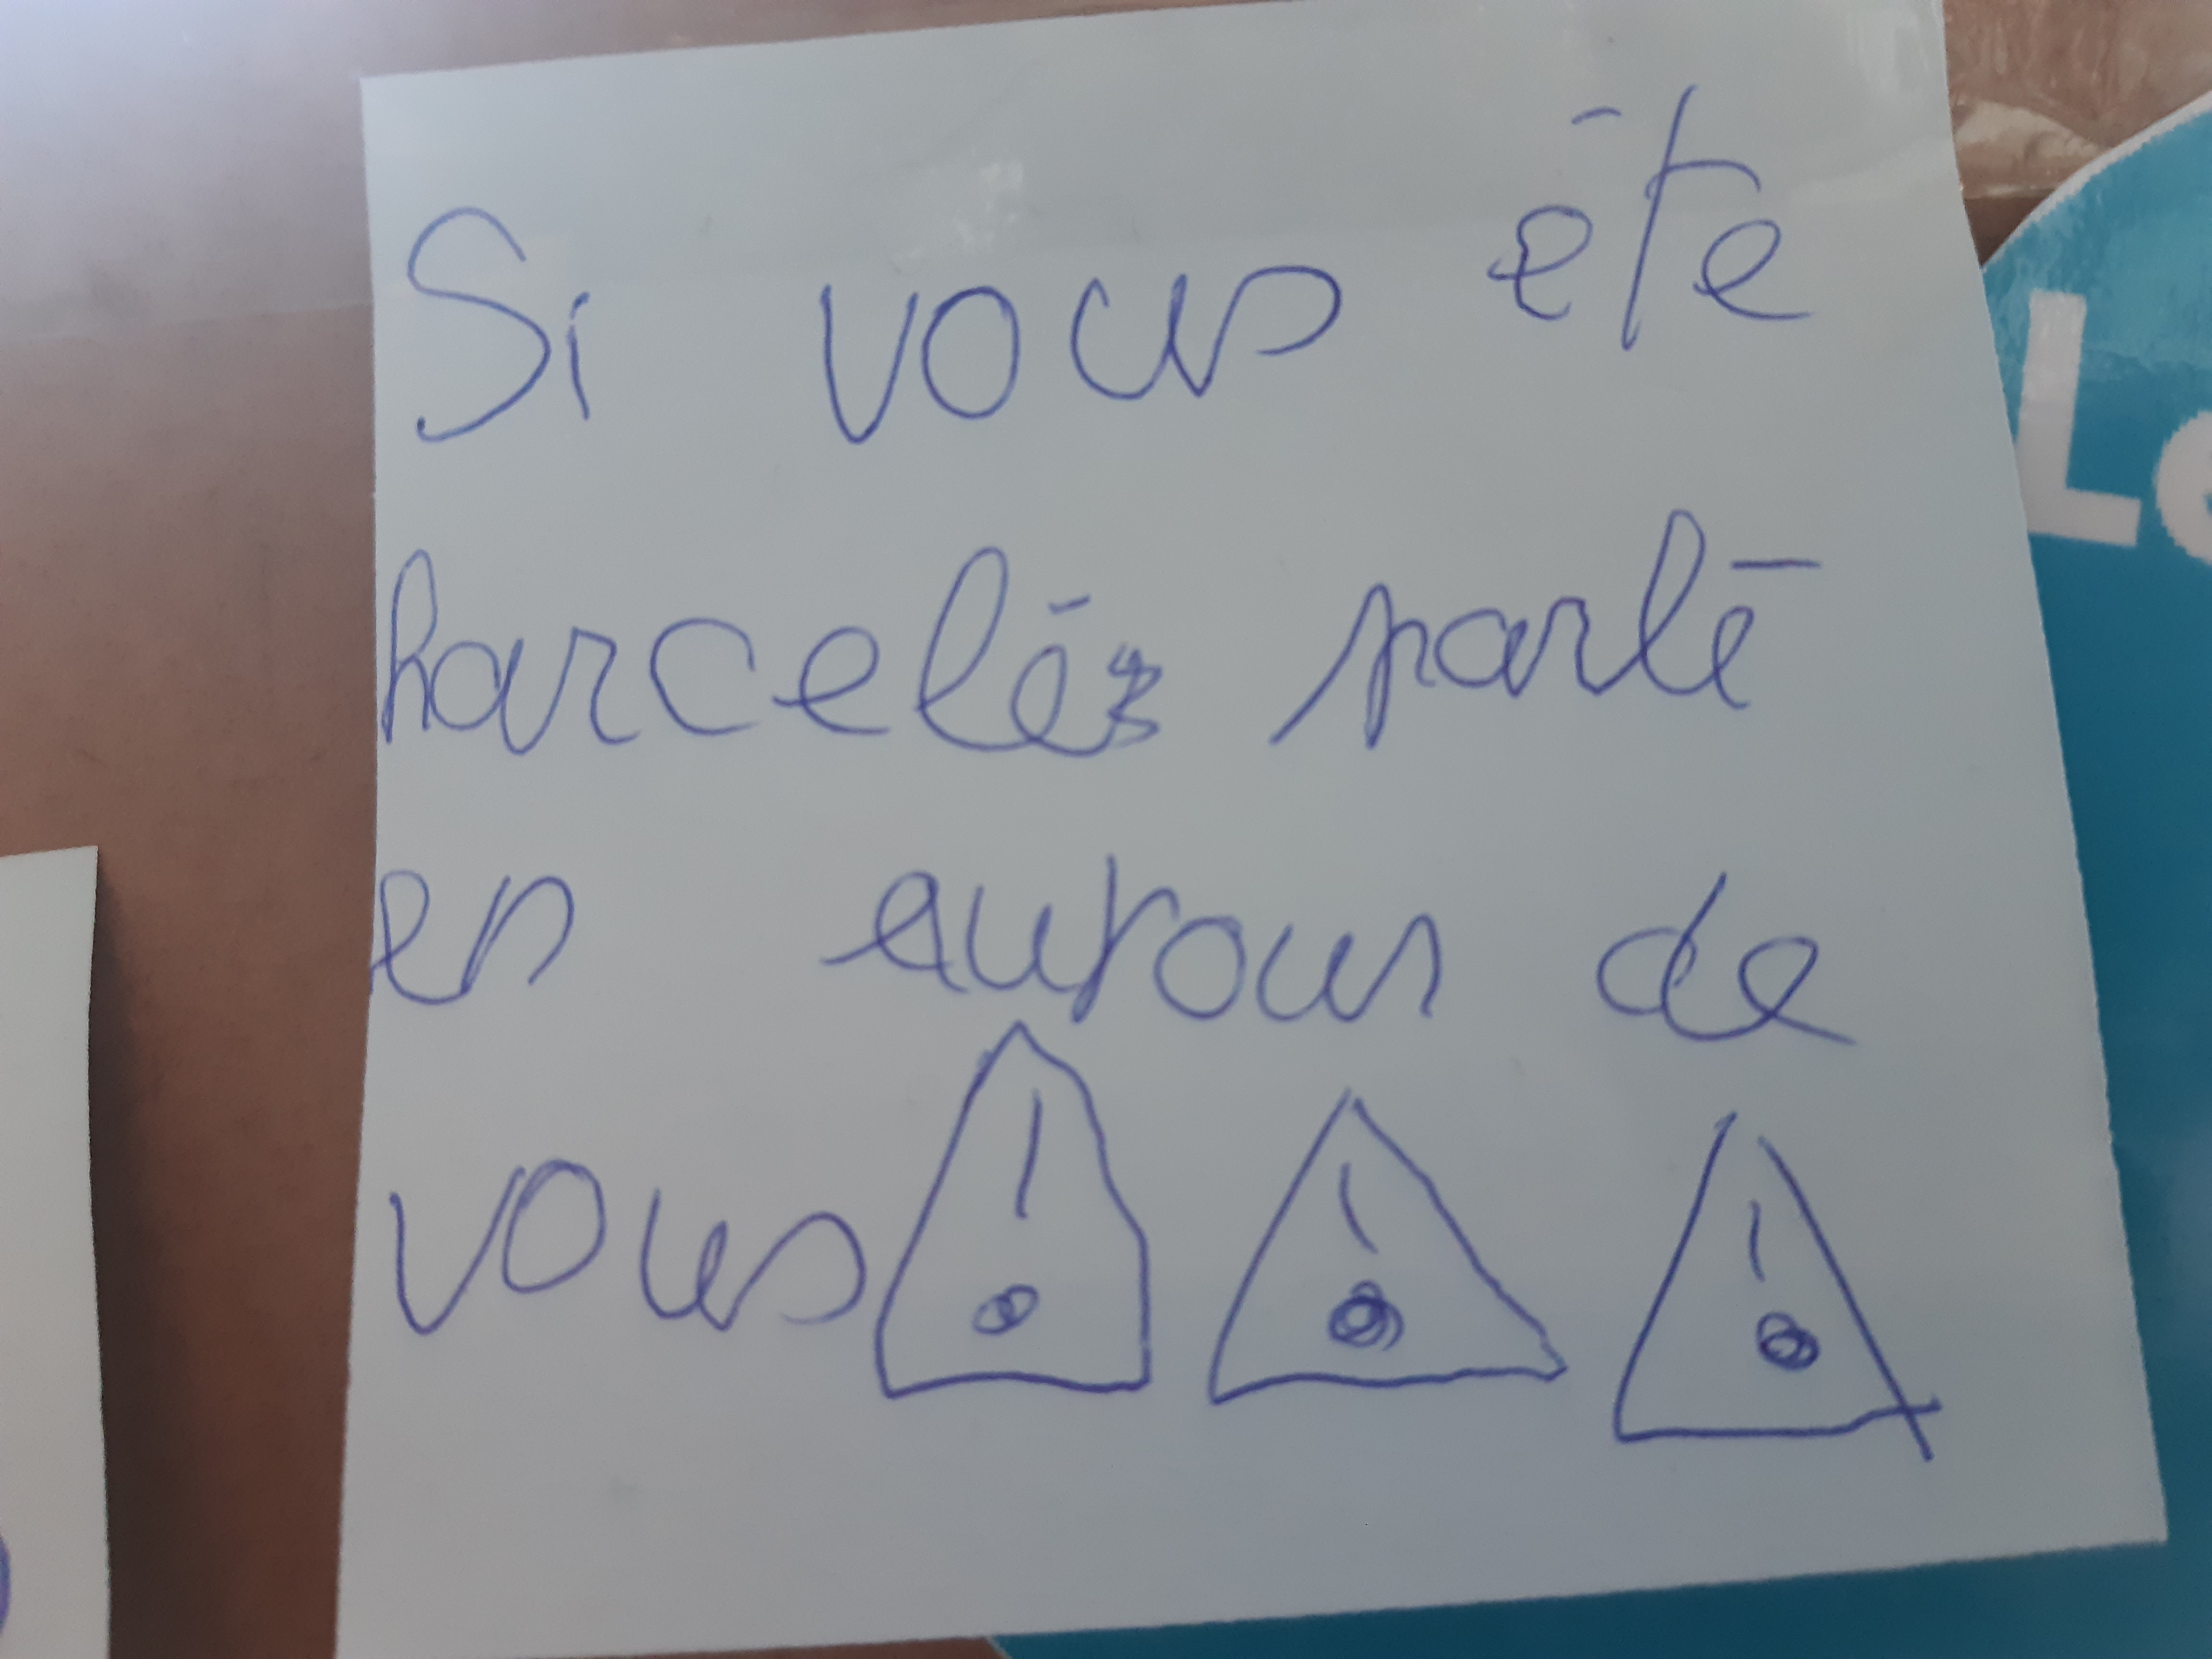 Si vous éte
harcelés parlé
en autour de
vous ⚠ ⚠ ⚠
Le